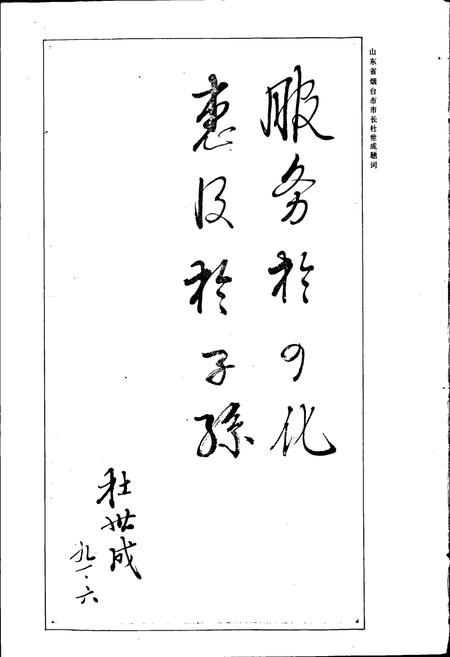 山东省烟台市市长杜世成题词
服务於四化
惠及於子孫
杜世成
九一.六